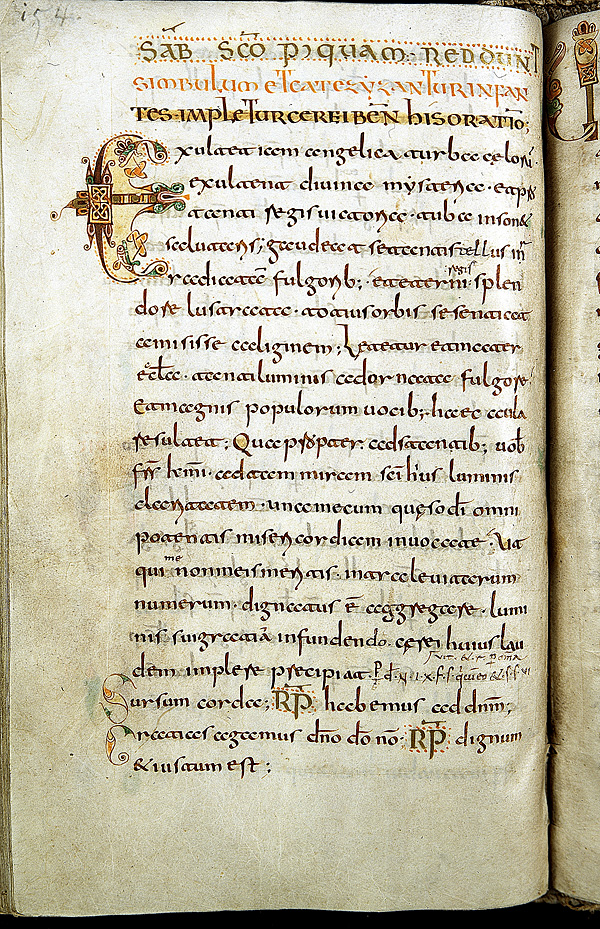 154.
SAB̄ SC̄O PṘIQUAM· REDDUNT
SIMBULUM ET CATEZIZANTUR INFAN
TES· IMPLETUR CEREI BEN̄ HIS ORATIO;
Exultet iam angelica turba celorū·
exultent divina mysteria· et p̄
tanti regis victoria· tuba inson&
salutaris; gaudeat se tantis tellus inr̄
radiatā fulgorib; et aeterni regis splen
dore lustrata· totius orbis se sentiat
amisisse caliginem; Letetur et mater
ecl̄a· tanti luminis adornata fulgore
Et magnis populorum vocib; haec aula
resultet; Quapropter adstantib; vob̄
fr̄s kr̄mi· ad tam miram sc̄i huius luminis
claritatem· una mecum quęso dī omni
potentis misericordiam invocate· Ut
qui me non meis meritis· intra levitarum
numerum· dignatus ē aggregare· lumi
nis sui gratiā infundendo· cerei huius lau
dem implere precipiat
Sursum corda; RP̄ habemus ad dn̄m;
Gratias agamus dn̄o dō no· RP̄ dignum
& iustum est;